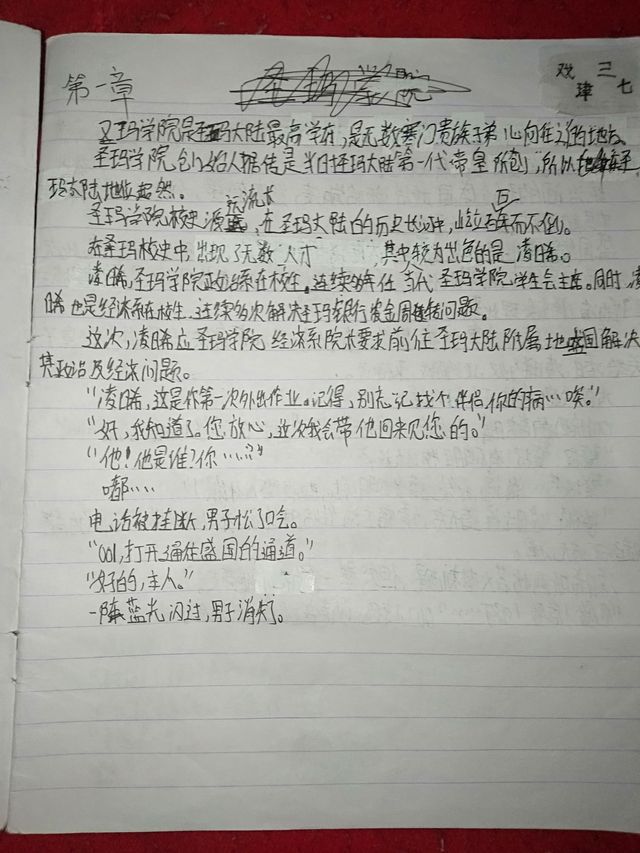 第一章
戏 三
津 七
圣玛学院是圣玛大陆最高学府,是无数寒门贵族子弟心向往之的地方。
圣玛学院创始人据传是当时圣玛大陆第一代帝皇所创,所以
玛大陆地位超然。
圣玛学院校史源远流长,在圣玛大陆的历史长河中,屹立百年而不倒。
在圣玛校史中,出现了无数"人才",其中较为出色的是凌晞。
凌晞,圣玛学院政治系在校生。连续多年任当代圣玛学院学生会主席。同时,凌
晞也是经济系在校生,连续多次解决圣玛银行资金周转问题。
这次,凌晞应圣玛学院经济系院长要求前往圣玛大陆附属地盛国解决
其政治及经济问题。
"凌晞,这是你第一次外出作业。记得,别忘记找个伴侣,你的病…唉。"
"好,我知道了。您放心,这次我会带他回来见您的。"
"他!他是谁?你……?"
嘟……
电话被挂断,男子松了口气。
"001,打开通往盛国的通道。"
"好的,主人。"
一阵蓝光闪过,男子消失了。